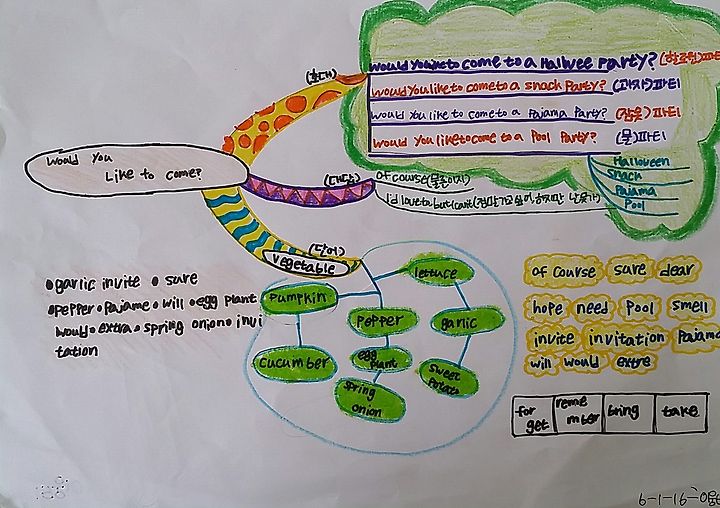 would Youlike to come to a Hallwee Party? (할로윈)파티
(초대)
would You like to come to a snack Party? (과자)파티
would You like to come to a Pajama Party? (잠옷)파티
would You like to come to a Pool Party? (물)파티
Halloween
snack
Pajama
Pool
would You
Like to come?
(대답)
of course(물론이지)
I'd love to but I can't
(단어)
vegetable
lettuce
Pumpkin
Pepper
garlic
cucumber
egg
plant
sweet
Potato
spring
onion
•garlic invite • sure
•pepper•Pajame•will•egg plant
would•extra•spring onion•invi
tation
of course sure dear
hope need Pool smell
invite invitation Pajama
will would extre
for
get
reme
mber
bring
take
6-1-16-